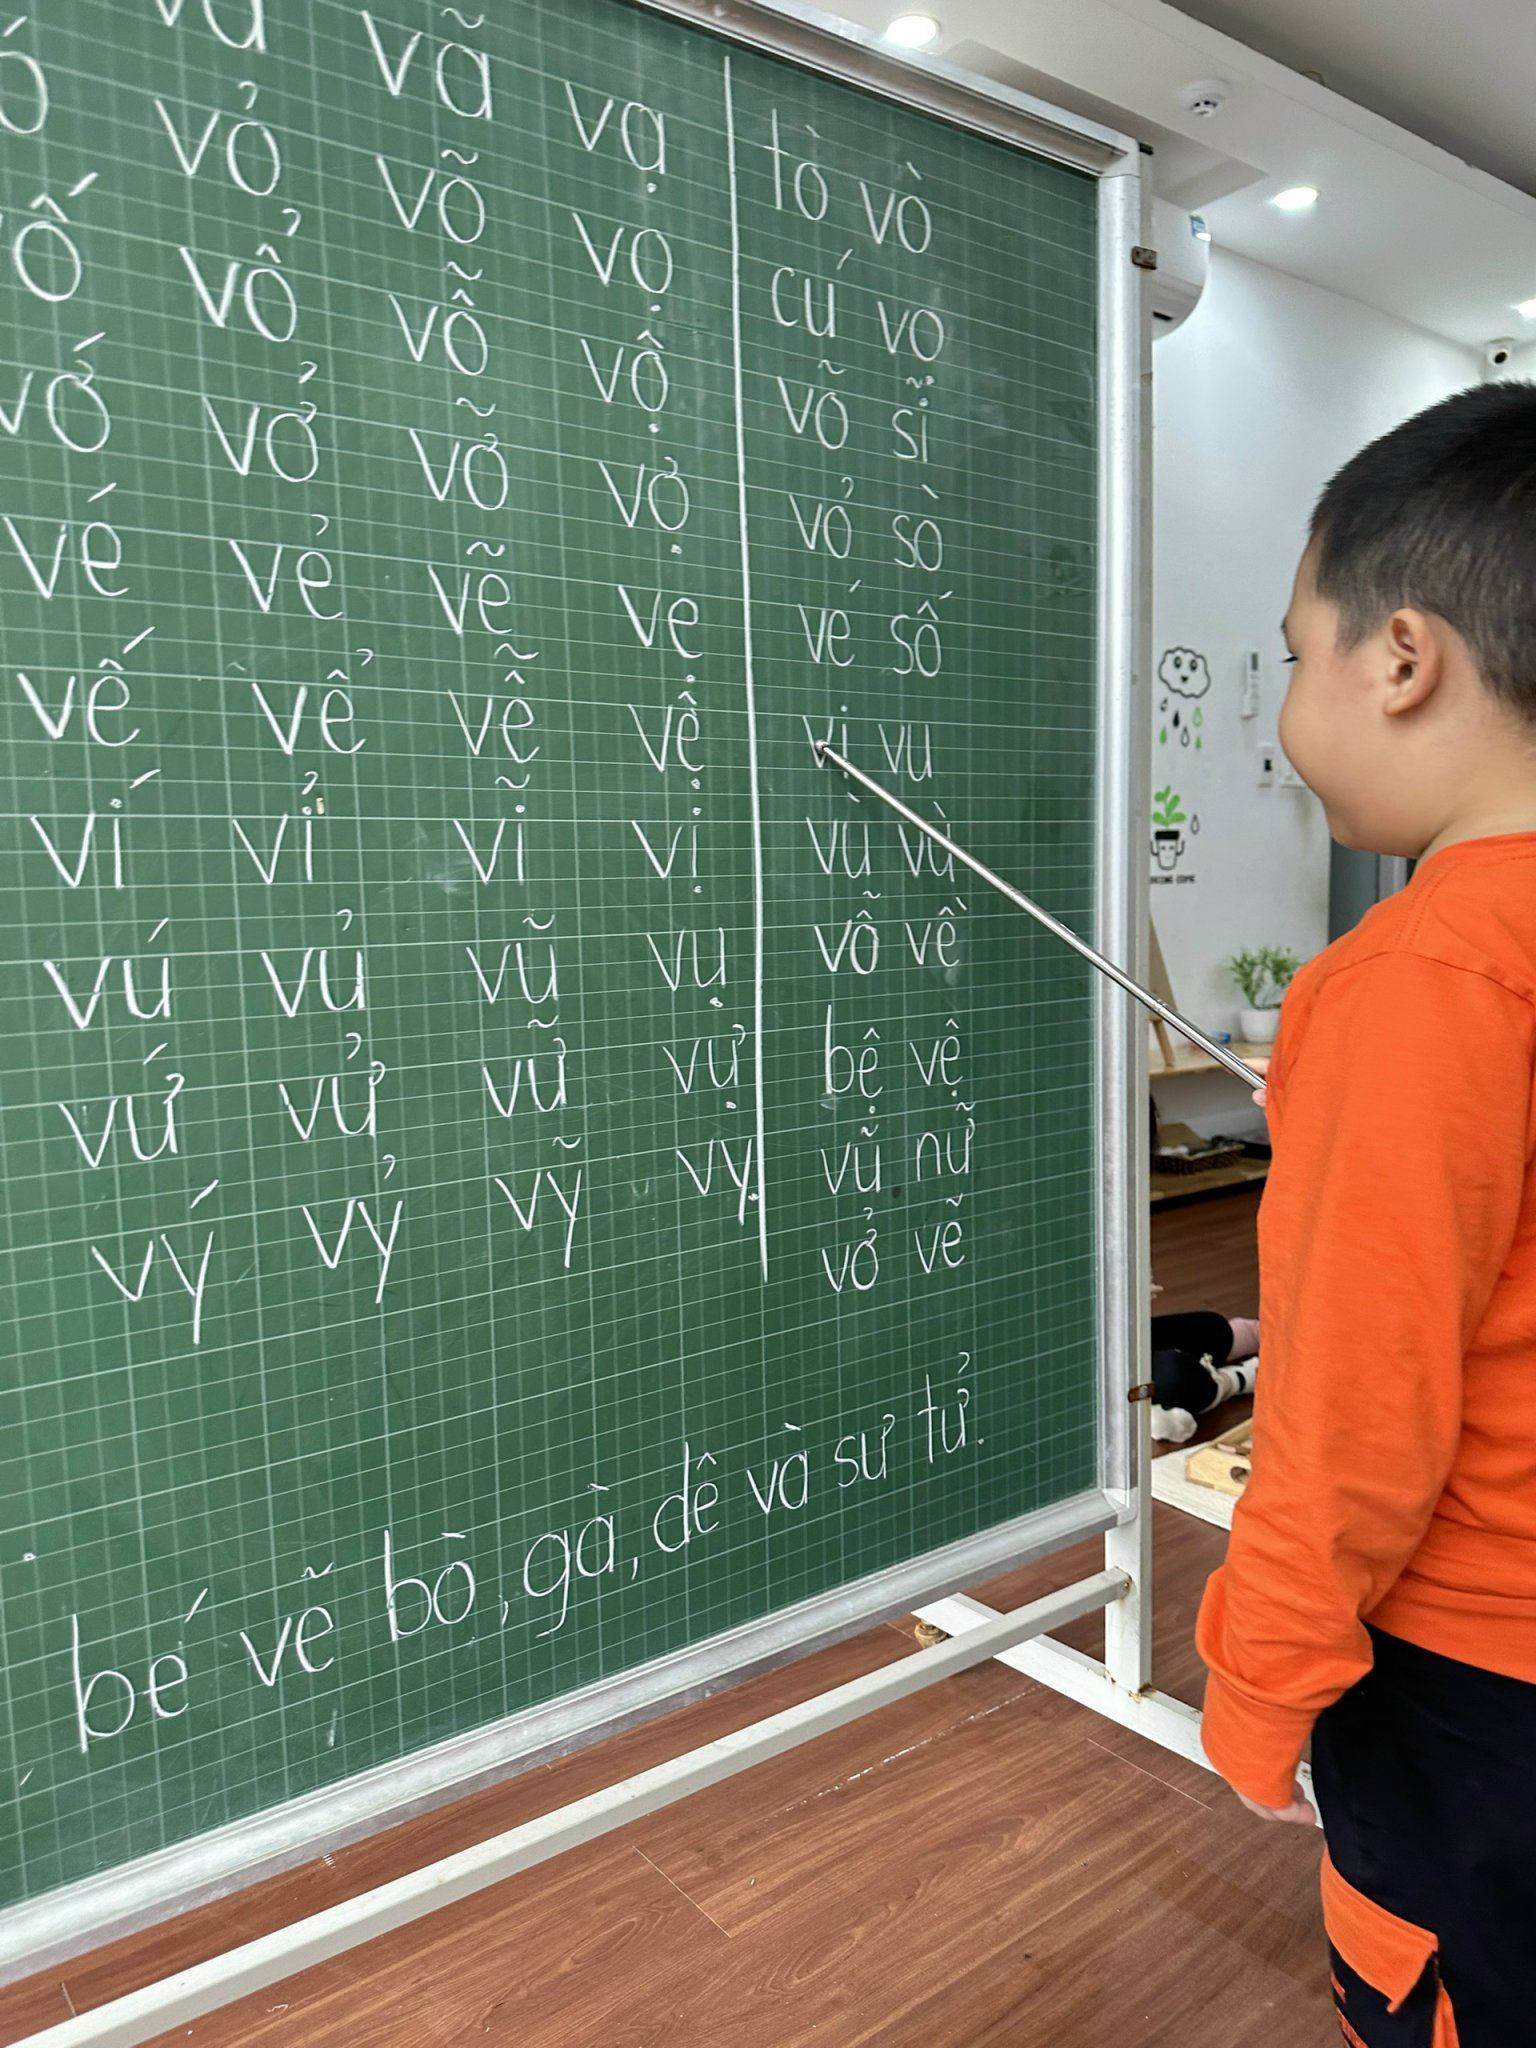 vã vạ
vỏ võ vọ
vố vổ vỗ vộ
vớ vở vỡ vợ
vé vẻ vẽ vẹ
vế vể vễ vệ
ví vỉ vĩ vị
vú vủ vũ vụ
vứ vử vữ vự
vý vỷ vỹ vỵ
tò vò
cú vọ
võ sĩ
vỏ sò
vé số
vi vu
vù vù
vỗ về
bê vệ
vũ nữ
vở vẽ
bé vẽ bò, gà, dê và sư tử.